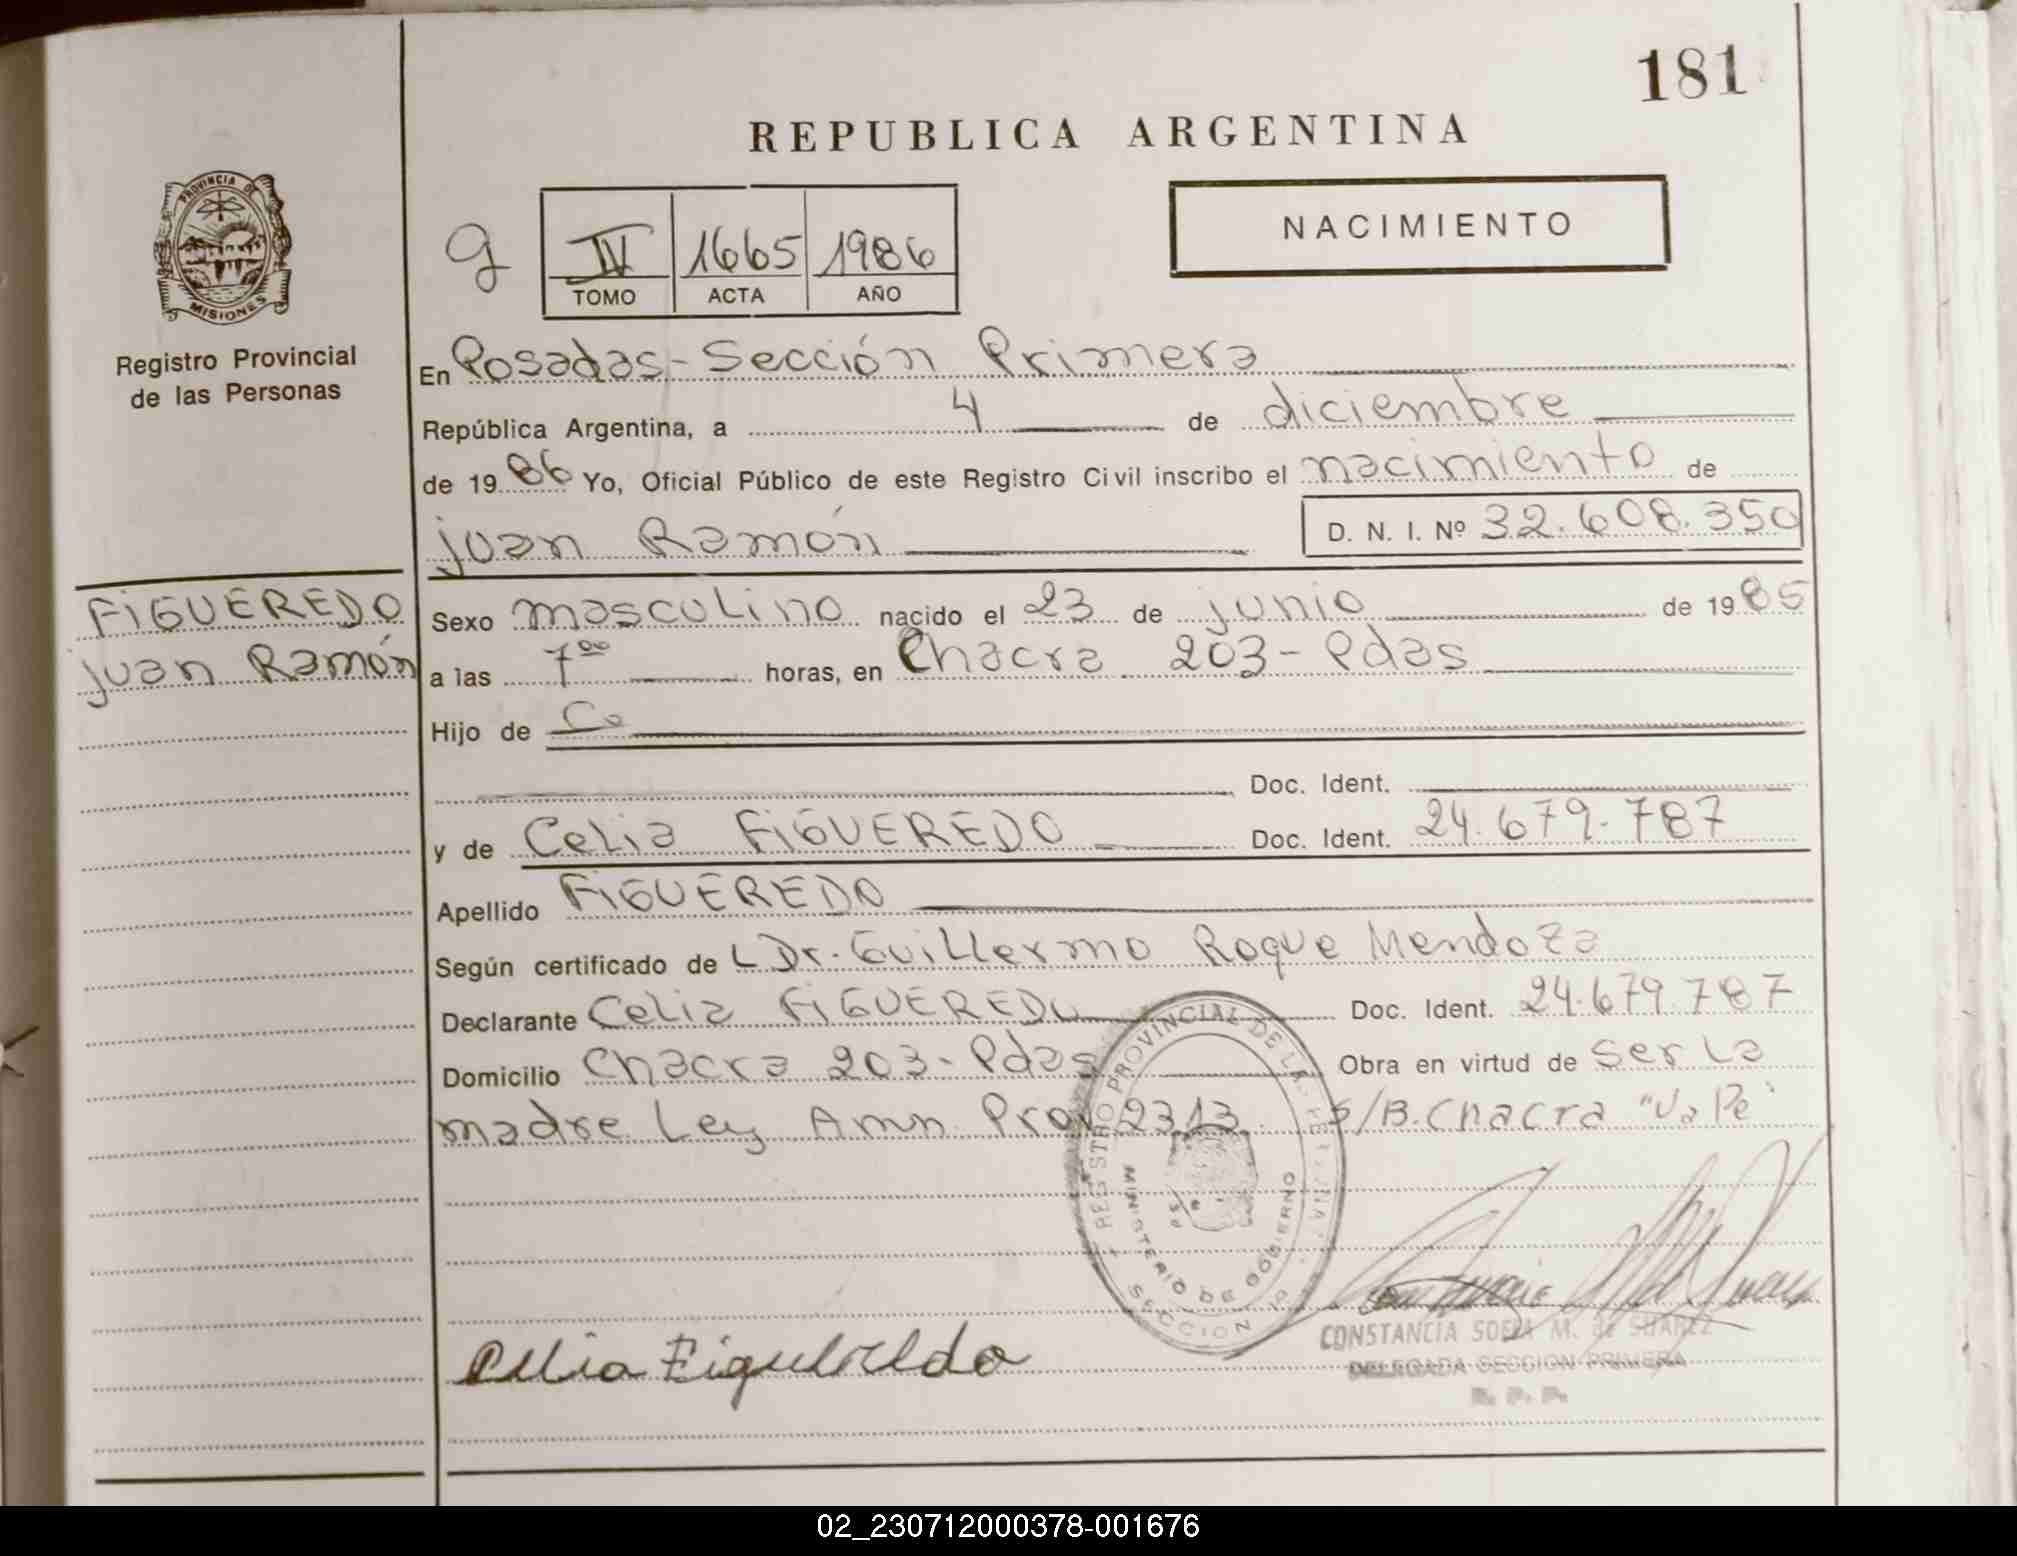 181
REPUBLICA ARGENTINA
PROVINCIA DE
MISIONES
Registro Provincial
de las Personas
g
IV 1665 1986
TOMO ACTA AÑO
NACIMIENTO
En Posadas - Sección Primera
República Argentina, a 4 de diciembre
de 19 86 Yo, Oficial Público de este Registro Civil inscribo el nacimiento de
Juan Ramón D. N. I. Nº 32.608.350
FIGUEREDO
Juan Ramón
Sexo masculino nacido el 23 de junio de 19 85
a las 7⁰⁰ horas, en Chacra 203 - Pdas
Hijo de
Doc. Ident.
y de Celia FIGUEREDO Doc. Ident. 24.679.787
Apellido FIGUEREDO
Según certificado de L Dr. Guillermo Roque Mendoza
Declarante Celia FIGUEREDO Doc. Ident. 24.679.787
Domicilio Chacra 203 - Pdas Obra en virtud de ser la
madre Ley Amn Prov 2313 S/B. Chacra "Va Pe"
REGISTRO PROVINCIAL DE LAS PERSONAS
MINISTERIO DE GOBIERNO
SECCION 1ª
Celia Figueredo
CONSTANCIA SOFIA M. de SUAREZ
DELEGADA SECCION PRIMERA
R. P. P.
02_230712000378-001676